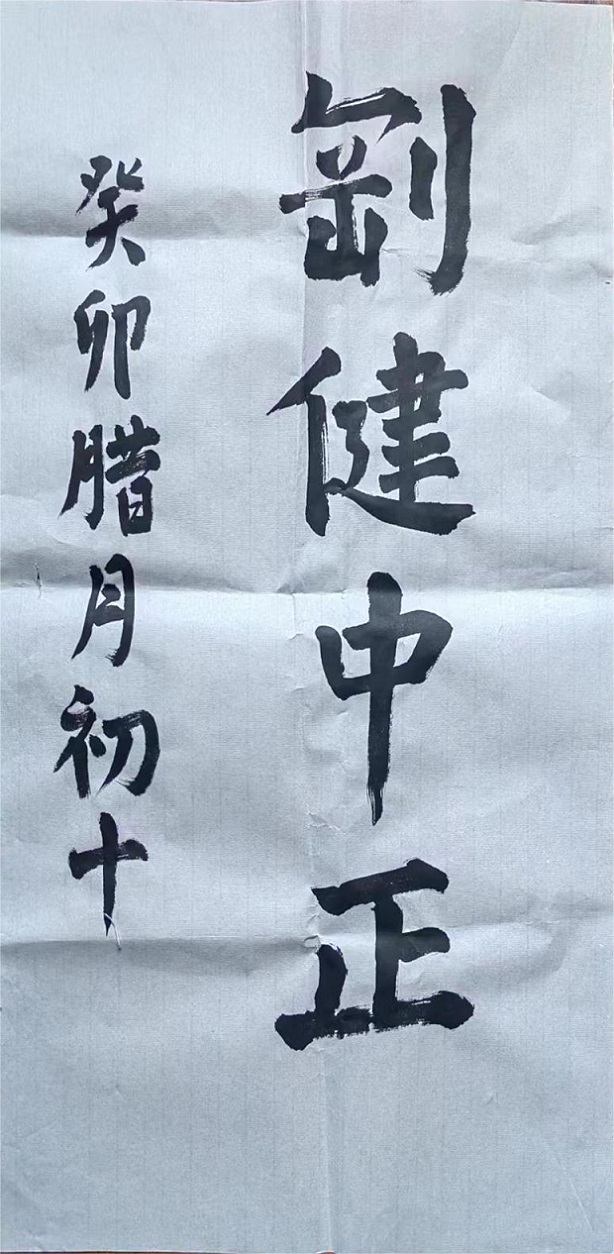 剛健中正
癸卯腊月初十